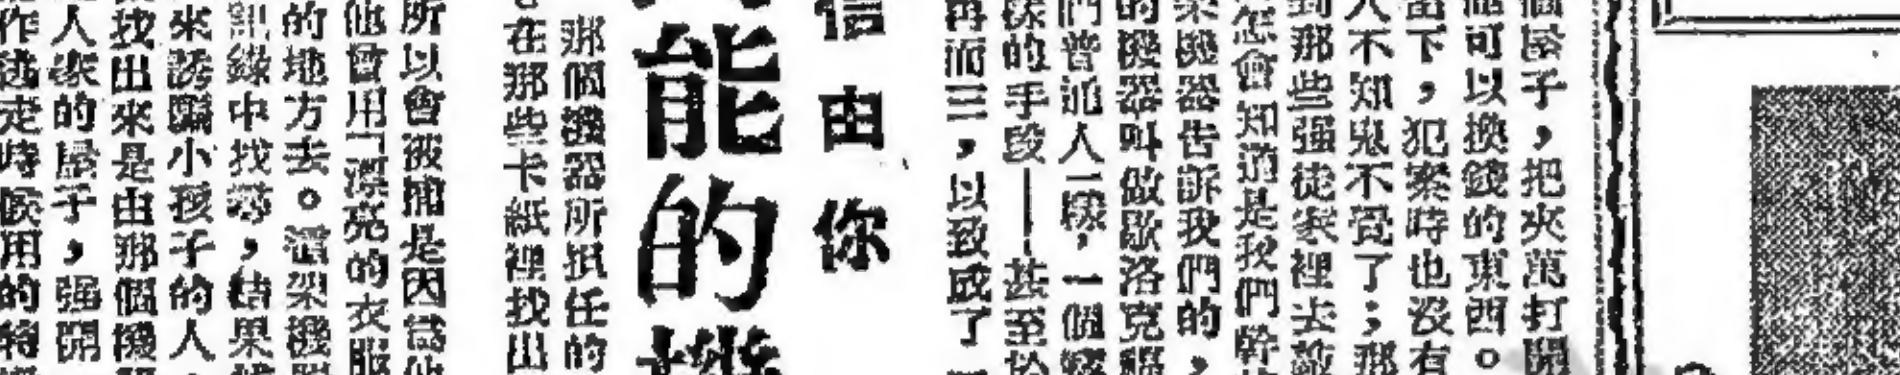 個屋子，把夾萬打開
可以換錢的東西。
當下，犯案時也沒有
人不知鬼不覺了；那
到那些强徒家裡去敲
怎會知道是我們幹
架機器告訴我們的，
的機器叫做歇洛克
們普通人一樣，一個
的手段——甚至於
再而三，以致成了
信由你
能的機
那個機器所担任的
在那些卡紙裡找出
所以會被捕是因爲他
他會用「漂亮的衣服
的地方去。這架機器
錄中找尋，結果
來誘騙小孩子的人，
找出來是由那個機器
人家的屋子，强開
作逃走時候用的